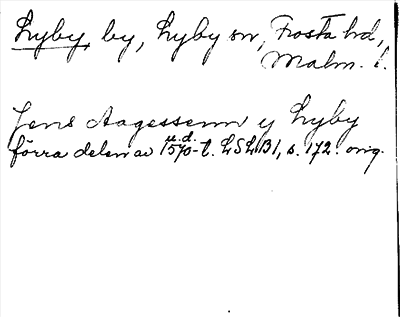 Lyby, by, Lyby sn, Frosta hd,
Malm. l.
Jens Aagessenn y Lyby
u.d.
förra delen av 1570-t. LSLB1, s. 172. orig.